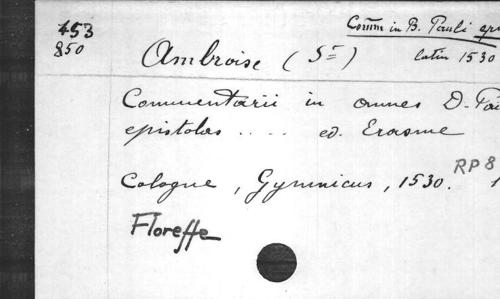 453
850
Comm in B. Pauli
Ambroise (St)
latin 1530
Commentarii in omnes D.
epistolas ..... ed. Erasme
RP 8
Cologne, Gymnicus, 1530.
Floreffe